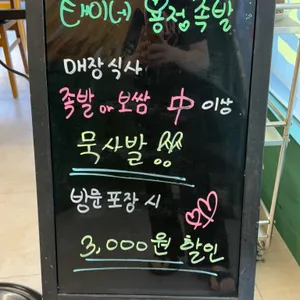 용점족발
매장식사
족발 or 보쌈 中 이상
묵사발
방문포장 시
3,000원 할인